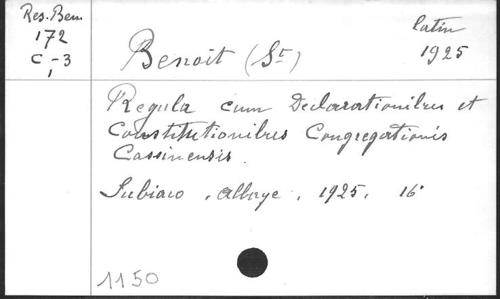 Res. Ben.
172
C-3
1
latin
1925
Benoit (St)
Regula cum Declarationibus et
Constitutionibus Congregationis
Cassinensis.
Subiaco, abbaye, 1925. 16°
1150